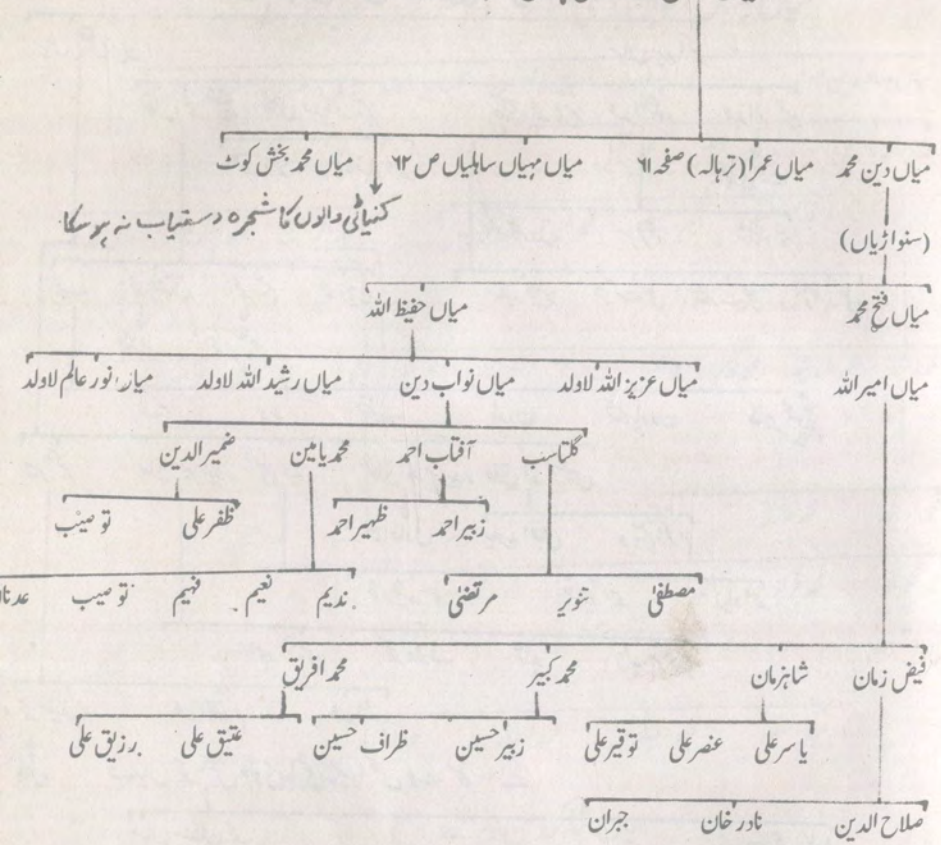 میاں دین محمد میاں عمرا (تربالہ) صفحہ ۶۱ میاں مہیاں ساہلیاں ص ۶۲ میاں محمد بخش کوٹ
کنیائی والوں کا شجرہ دستیاب نہ ہو سکا
(سنواڑیاں)
میاں فتح محمد میاں حفیظ اللہ
میاں امیر اللہ میاں عزیز اللہ لاولد میاں نواب دین میاں رشید اللہ لاولد میاں نور عالم لاولد
گلتاسب آفتاب احمد محمد یامین ضمیر الدین
زبیر احمد ظہیر احمد ظفر علی توصیب
مصطفیٰ تنویر مرتضیٰ ندیم نعیم فہیم توصیب
فیض زمان شاہزمان محمد کبیر محمد افریق
یاسر علی عنصر علی توقیر علی زبیر حسین ظراف حسین عتیق علی رزیق علی
صلاح الدین نادر خان جبران